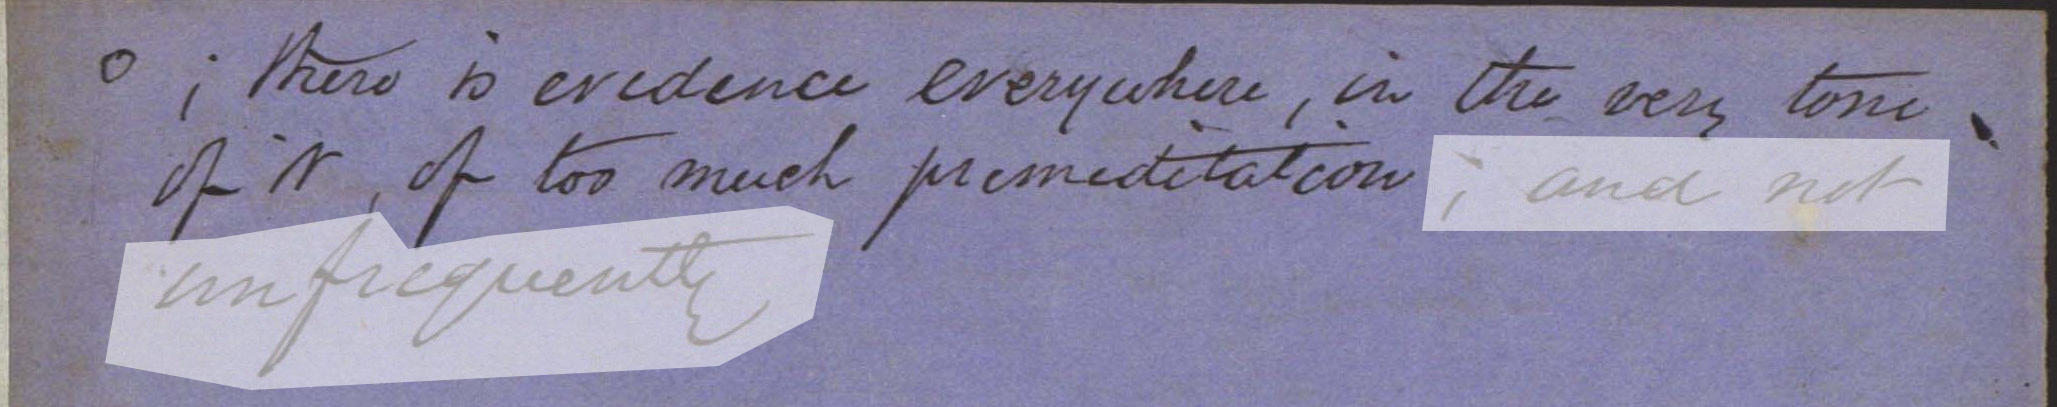 o ; there is evidence everywhere, in the very tone
of it, of too much premeditation ; and not
unfrequently